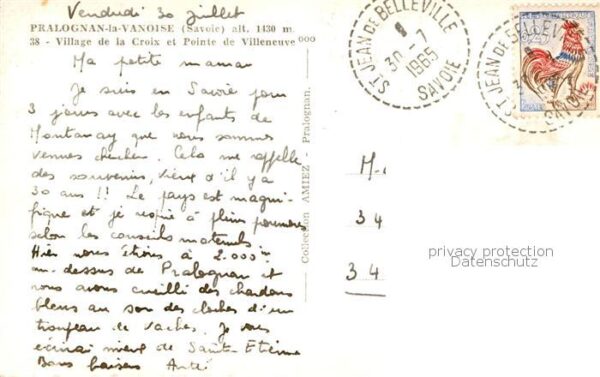 Vendredi 30 juillet
PRALOGNAN-la-VANOISE (Savoie) alt. 1430 m.
38 - Village de la Croix et Pointe de Villeneuve
Ma petite maman
Je suis en Savoie pour
3 jours avec les enfants de
Montanay que nous sommes
venues chercher. Cela me rappelle
des souvenirs, vieux d'il y a
30 ans !! Le pays est magni-
fique et je respire à pleins poumons
selon les conseils maternels
Hier nous étions à 2.000 m
au-dessus de Pralognan et
nous avons cueilli des chardons
bleus au son des cloches d'un
troupeau de vaches. Je vous
écrirai mieux de Saint-Etienne
Bons baisers
Collection AMIEZ - Pralognan.
ST JEAN DE BELLEVILLE
30-7
1965
SAVOIE
ST JEAN DE BELLEVILLE
SAVOIE
M.
34
34
privacy protection
Datenschutz